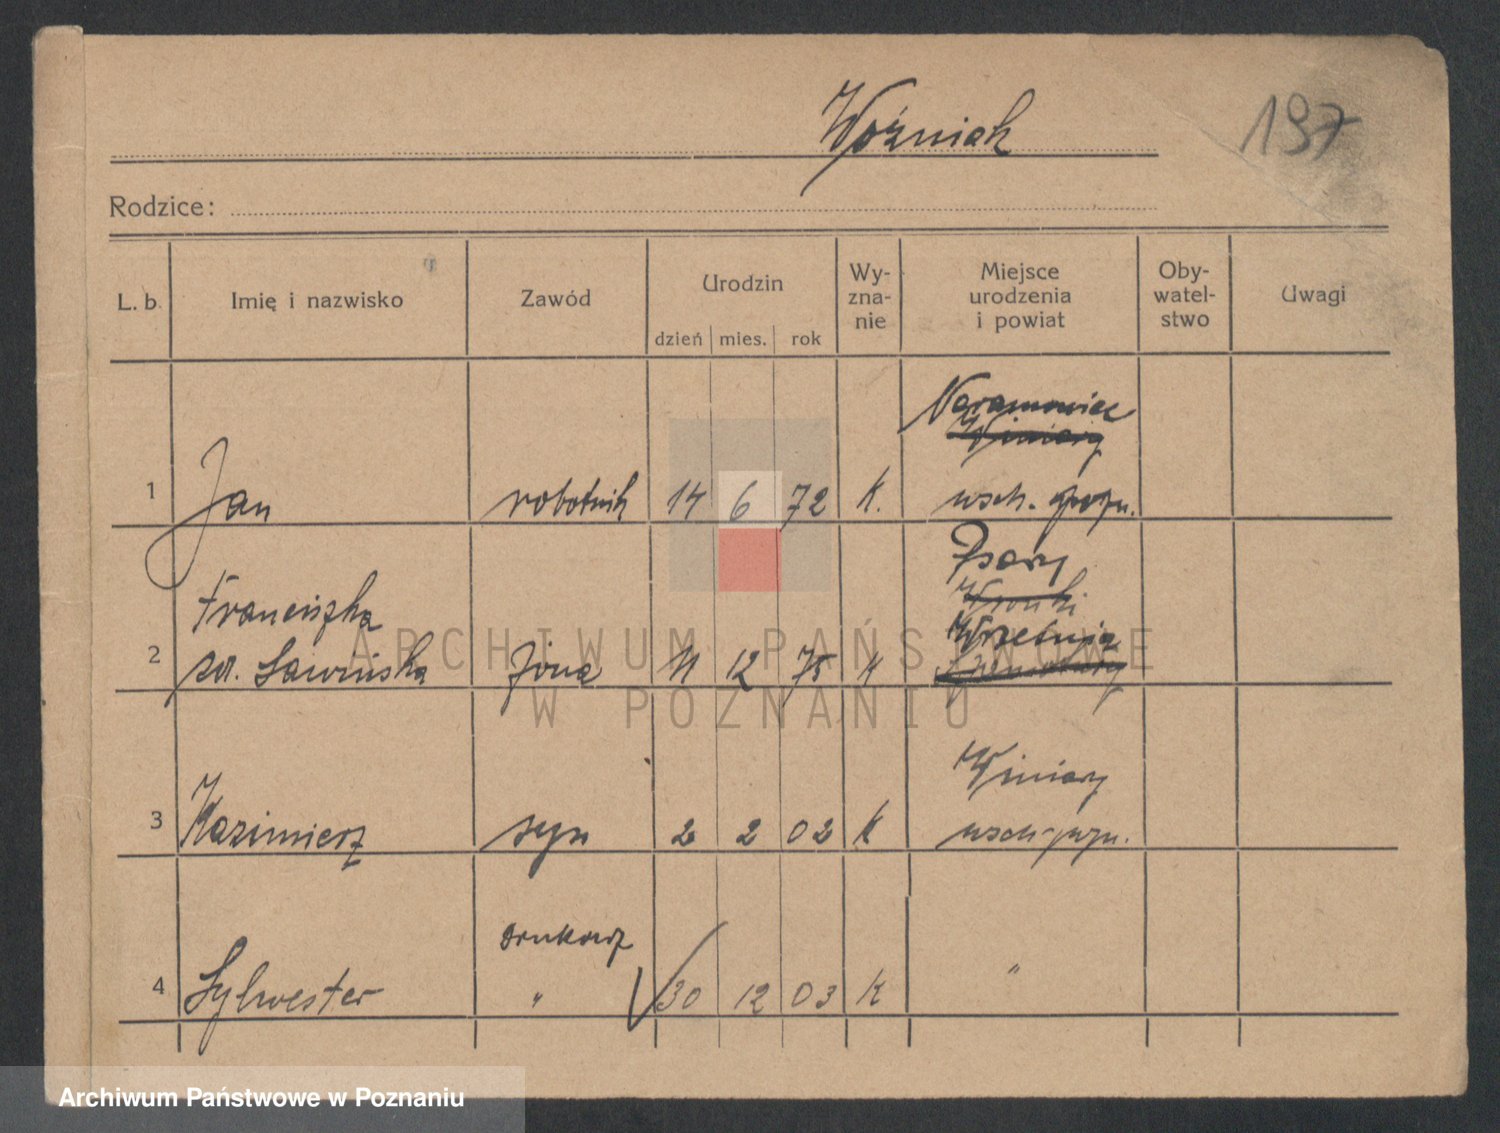 Woźniak
197
Rodzice:
L. b.
Imię i nazwisko
Zawód
Urodzin
dzień mies. rok
Wy-
zna-
nie
Miejsce
urodzenia
i powiat
Oby-
watel-
stwo
Uwagi
Naramowice
Winiary
1 Jan robotnik 14 6 72 K. wsch. pozn.
Psary
Wronki
Franciszka
Września
2 zd. Sawińska żona 11 12 75 K
Winiary
3 Kazimierz syn 2 2 02 K wsch. pozn.
drukarz
4 Sylwester " 30 12 03 K "
ARCHIWUM PAŃSTWOWE
W POZNANIU
Archiwum Państwowe w Poznaniu